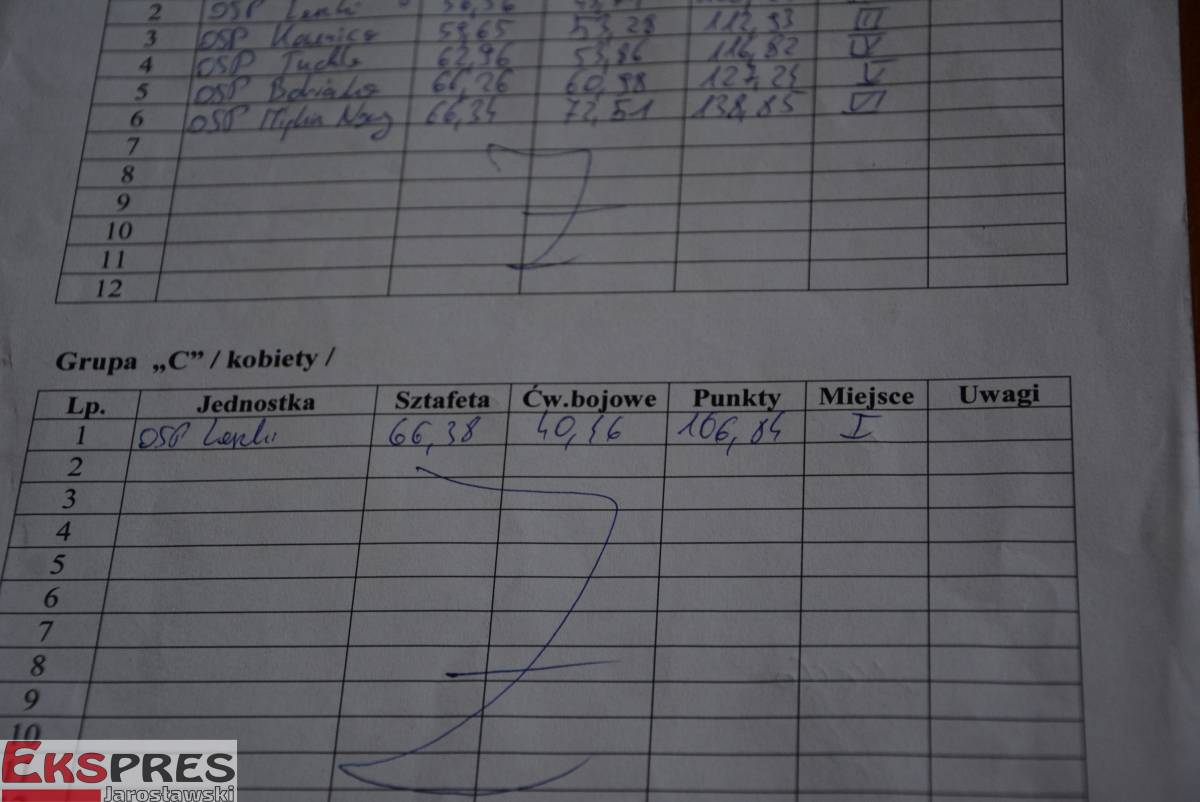 2 OSP
3 OSP 59,65 53,28 112,93 III
4 OSP Tuchla 62,96 53,86 116,82 IV
5 OSP 66,26 60,98 127,24 V
6 OSP 66,34 72,51 138,85 VI
7
8
9
10
11
12
Grupa „C” / kobiety /
Lp. Jednostka Sztafeta Ćw.bojowe Punkty Miejsce Uwagi
1 OSP 66,38 40,46 106,84 I
2
3
4
5
6
7
8
9
10
EKSPRES
Jarosławski